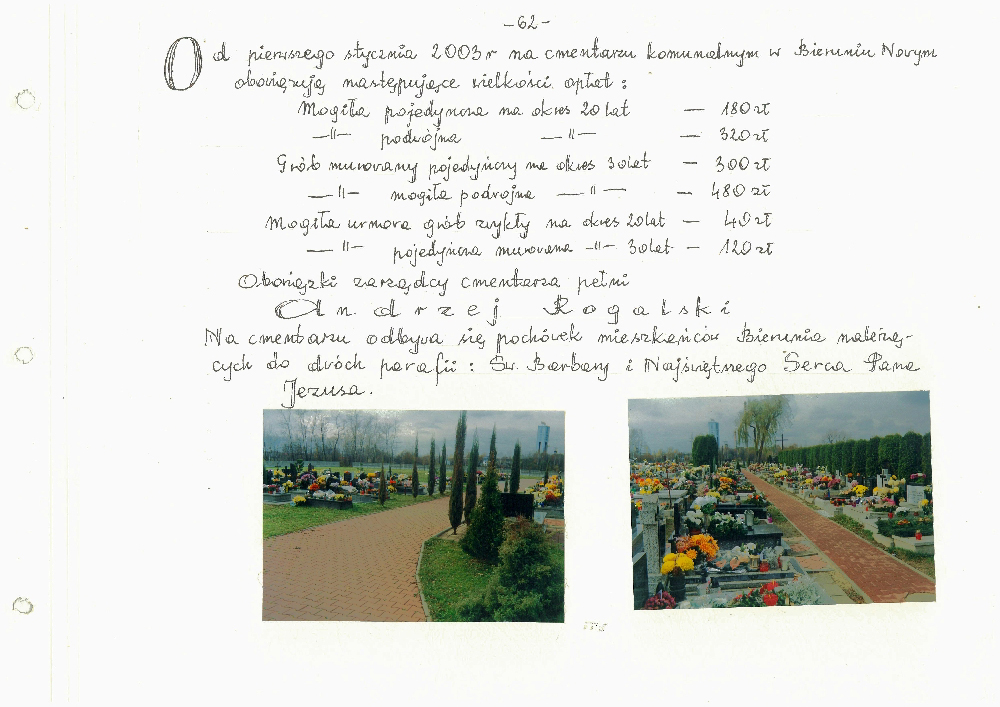 -62-
Od pierwszego stycznia 2003r na cmentarzu komunalnym w Bieruniu Nowym
obowiązują następujące wielkości opłat :
Mogiła pojedyncza na okres 20 lat — 180 zł
—"— podwójna —"— — 320 zł
Grób murowany pojedyńczy na okres 30 lat — 300 zł
—"— mogiła podwojna —"— — 480 zł
Mogiła urnowa grób zwykły na okres 20 lat — 40 zł
—"— pojedyńcza murowana —"— 30 lat — 120 zł
Obowiązki zarządcy cmentarza pełni
Andrzej Rogalski
Na cmentarzu odbywa się pochówek mieszkańców Bierunia należą-
cych do dwóch parafii : Św. Barbary i Najświętnego Serca Pana
Jezusa.